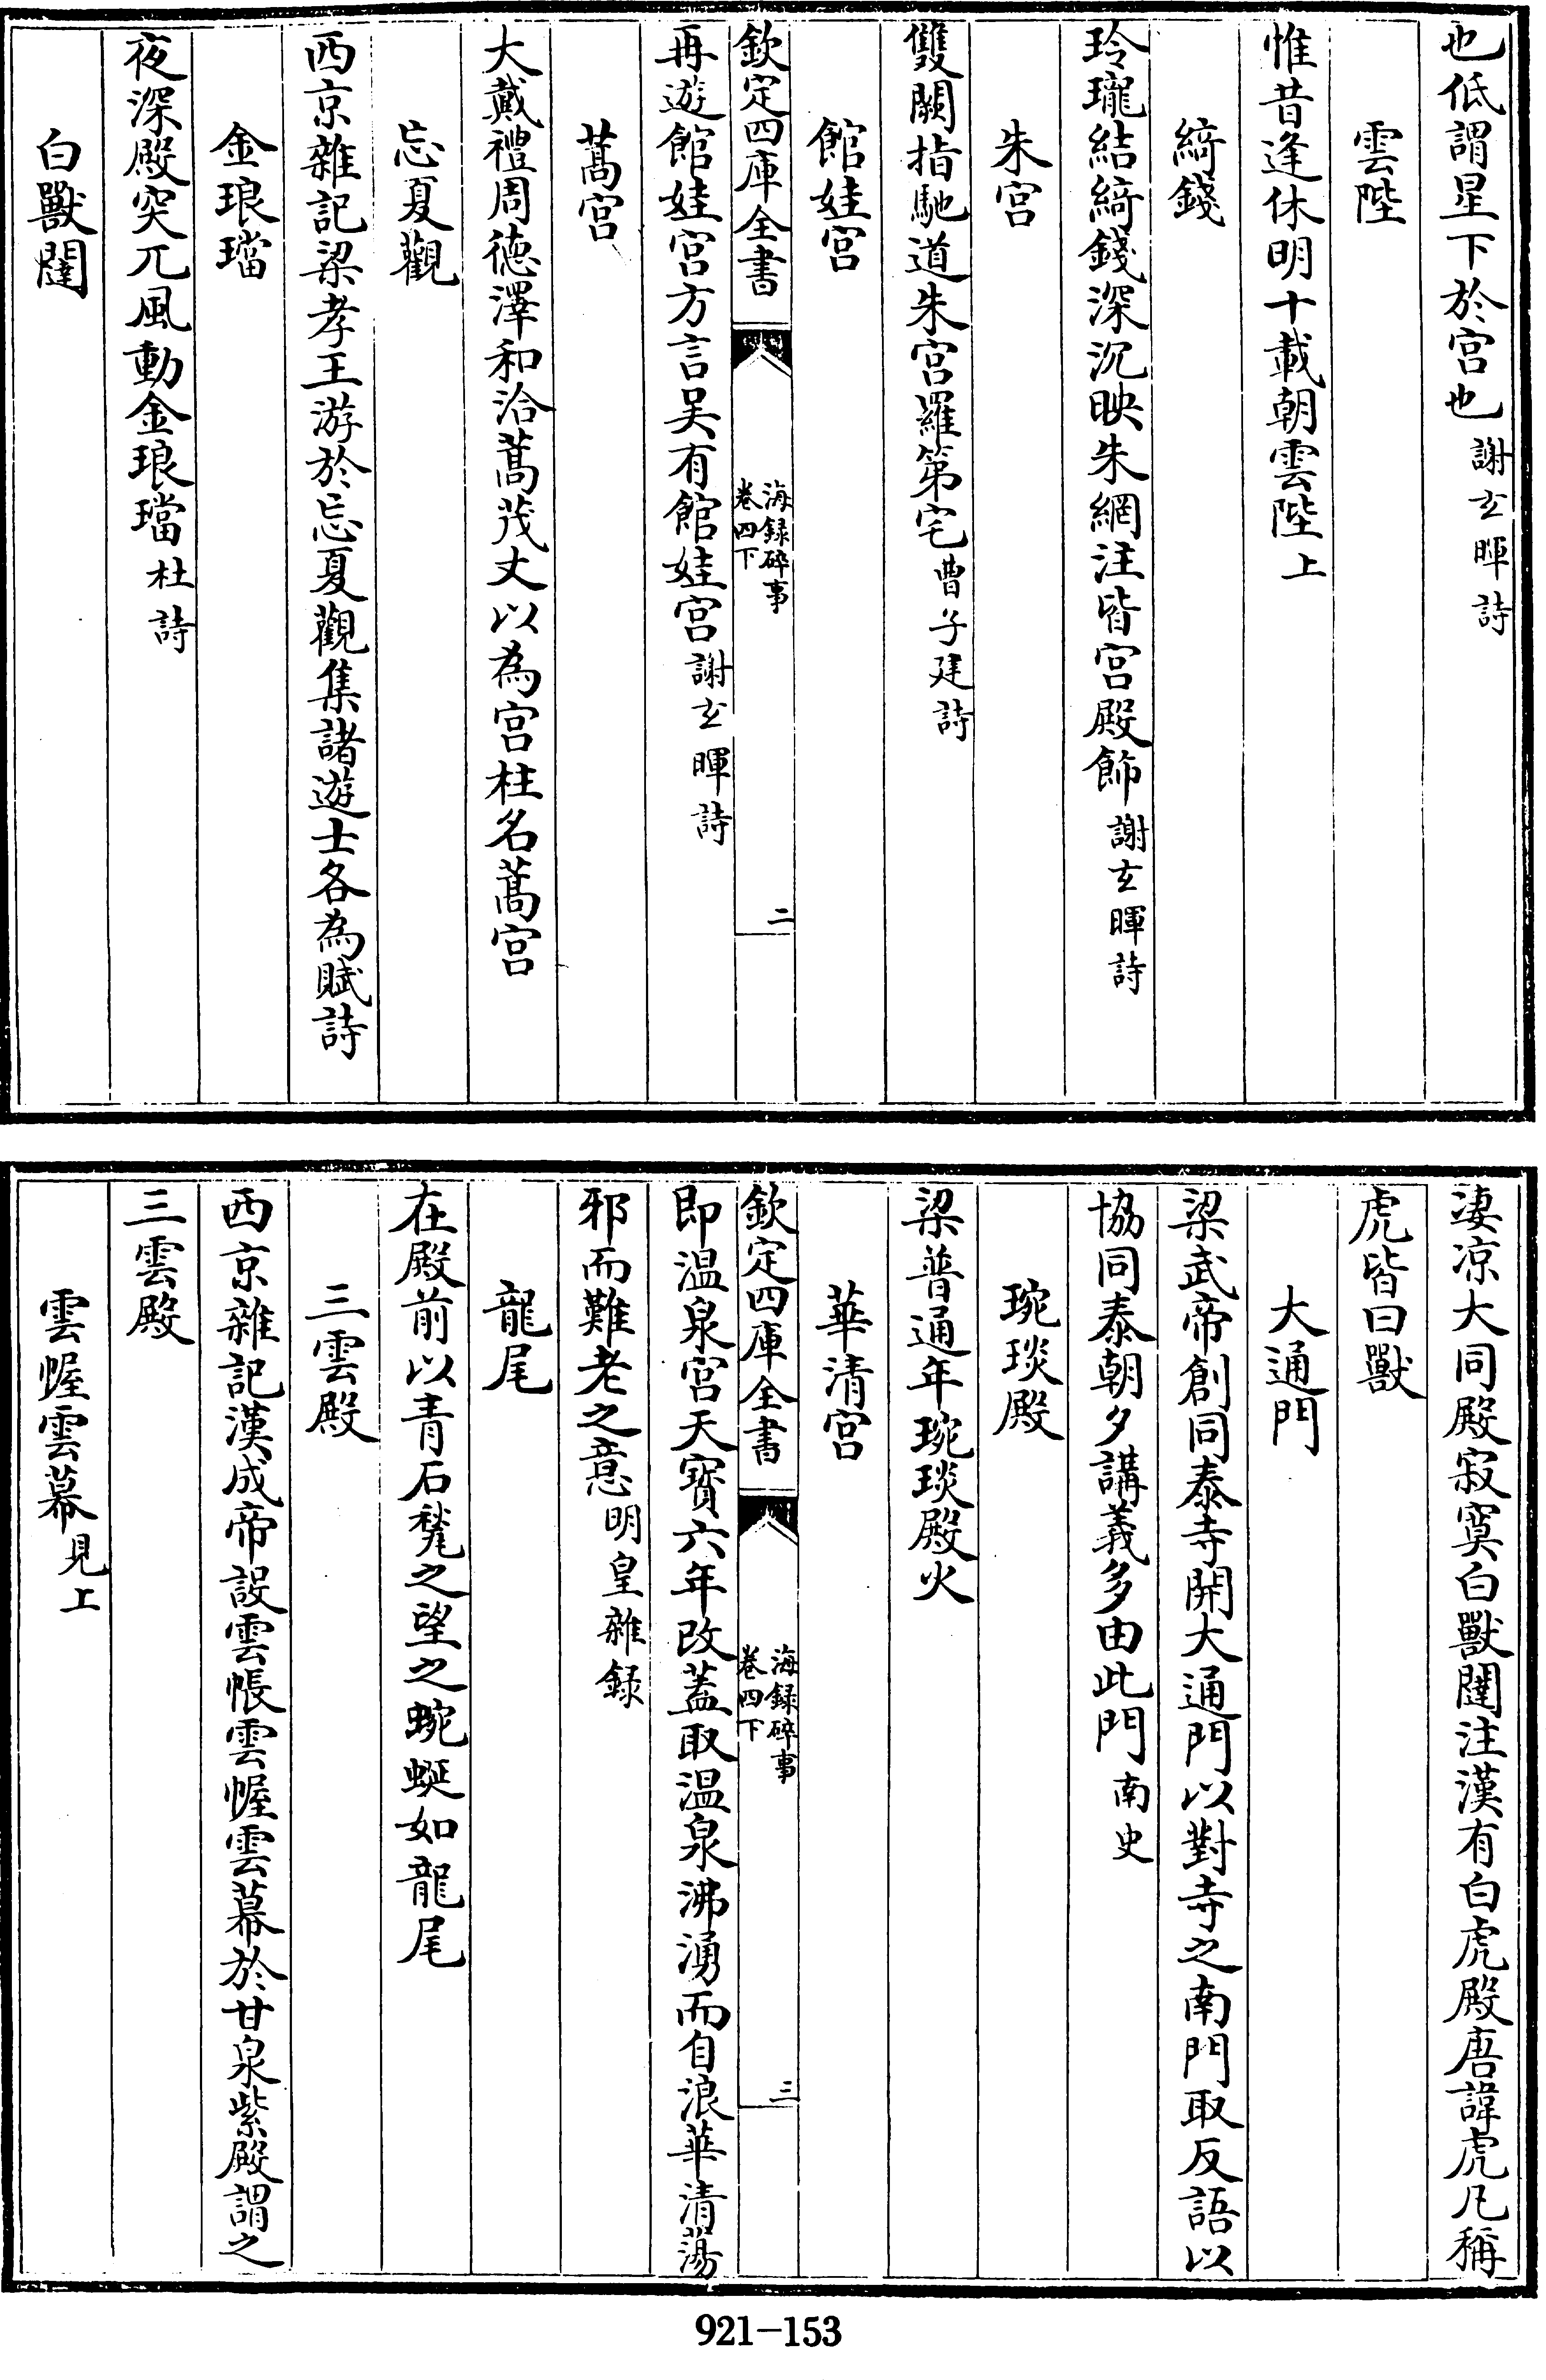 也低謂星下於宫也謝玄暉詩
雲陛
惟昔逢休明十載朝雲陛上
綺錢
玲瓏結綺錢深沉映朱網注皆宫殿飾謝玄暉詩
朱宫
雙闕指馳道朱宫羅第宅曹子建詩
館娃宫
欽定四庫全書
海録碎事
卷四下
二
再遊館娃宫方言吴有館娃宫謝玄暉詩
蒿宫
大戴禮周德澤和洽蒿茂丈以為宫柱名蒿宫
忘夏觀
西京雜記梁孝王游於忘夏觀集諸遊士各為賦詩
金琅璫
夜深殿突兀風動金琅璫杜詩
白獸闥
凄凉大同殿寂寞白獸闥注漢有白虎殿唐諱虎凡稱
虎皆曰獸
大通門
梁武帝創同泰寺開大通門以對寺之南門取反語以
協同泰朝夕講義多由此門南史
琬琰殿
梁普通年琬琰殿火
華清宫
欽定四庫全書
海録碎事
卷四下
三
即温泉宫天寳六年改蓋取温泉沸湧而自浪華清蕩
邪而難老之意明皇雜録
龍尾
在殿前以青石甃之望之蜿蜒如龍尾
三雲殿
西京雜記漢成帝設雲帳雲幄雲幕於甘泉紫殿謂之
三雲殿
雲幄雲幕見上
921-153